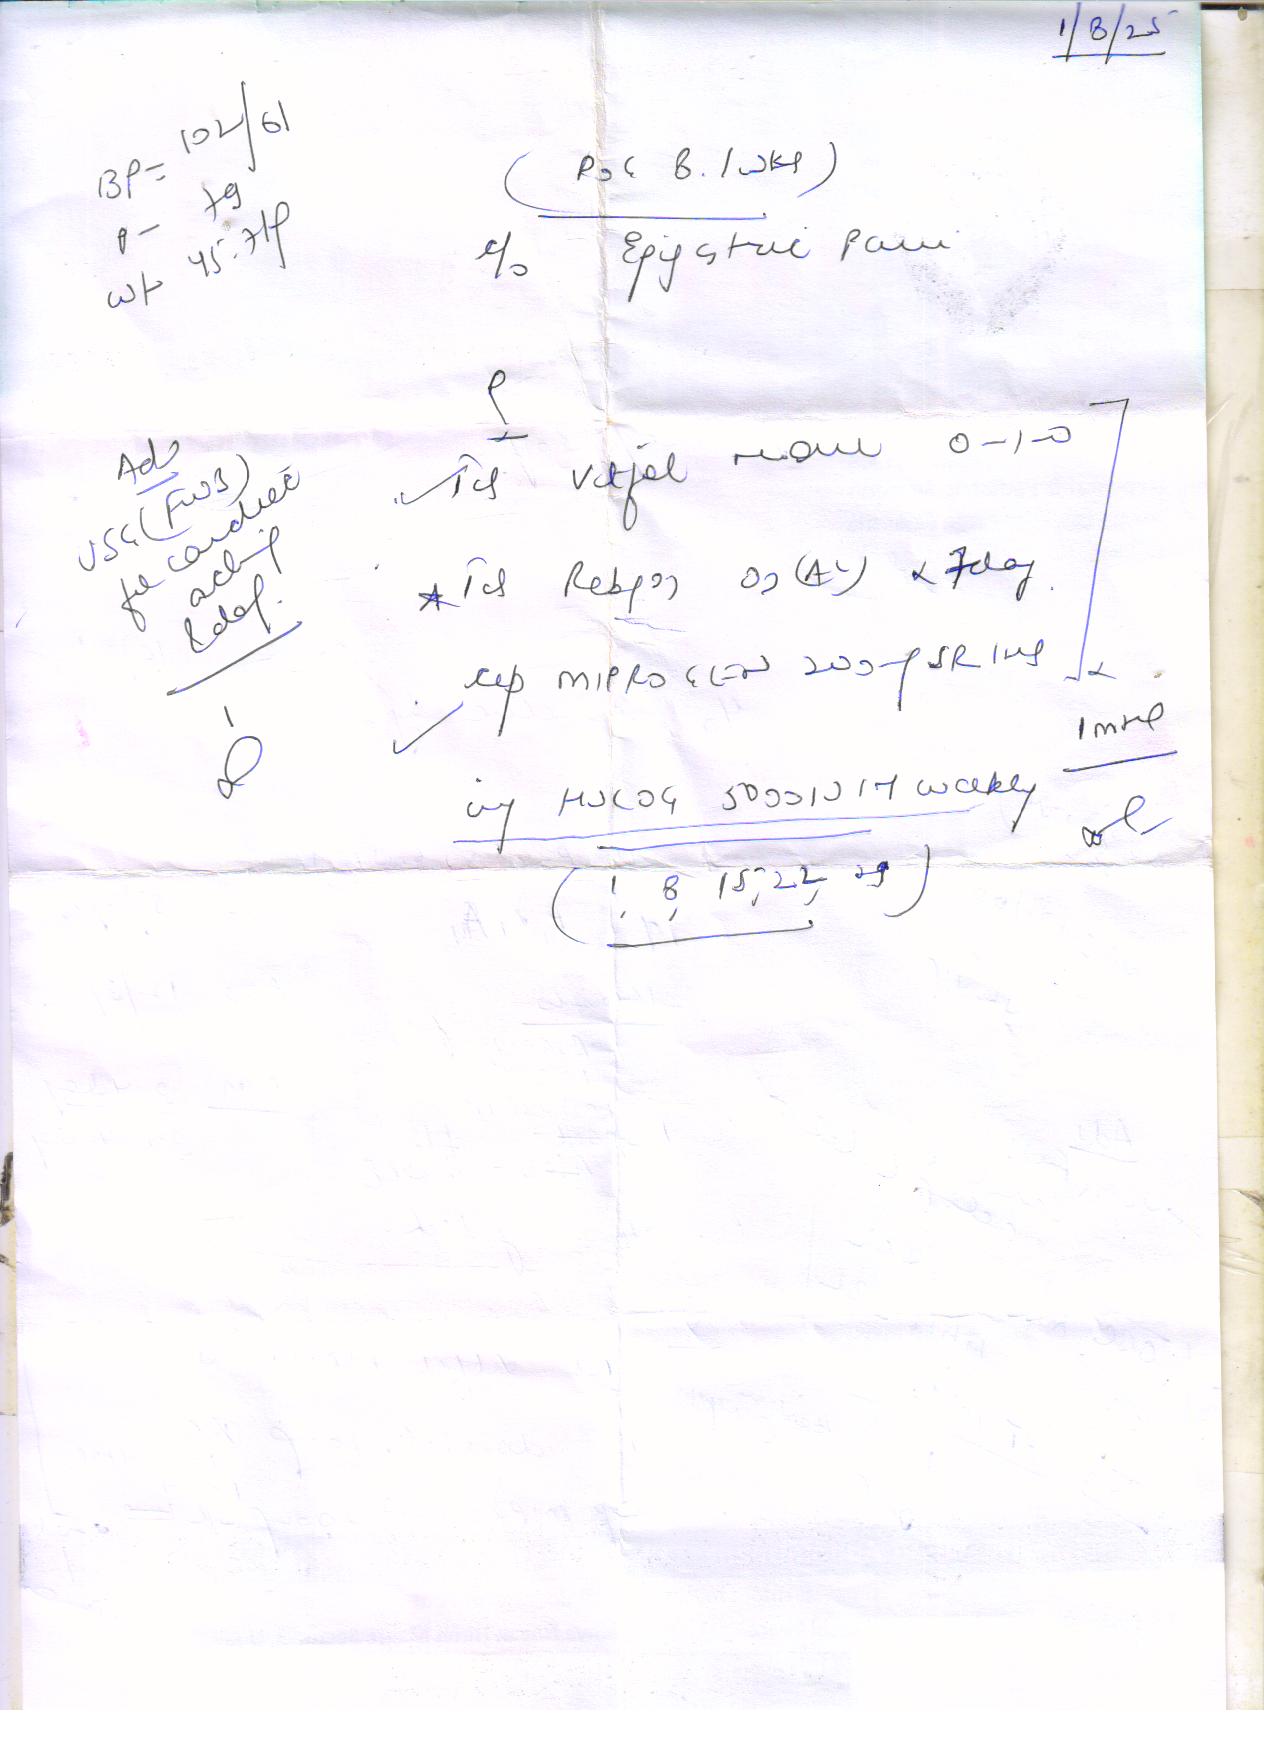 1/8/25
BP= 102/61
P- 79
wt- 45.7kg
(POG 8.1 wks)
c/o Epigastric pain
Adv
USG (FWB)
for cardiac
activity
& dop.
Tab 0-1-0
Tab OD (AC) x 7day
cap MIPROGEN 200mg SR 1HS
inj HUCOG 5000 IU IM weekly
(1, 8, 15, 22, 29)